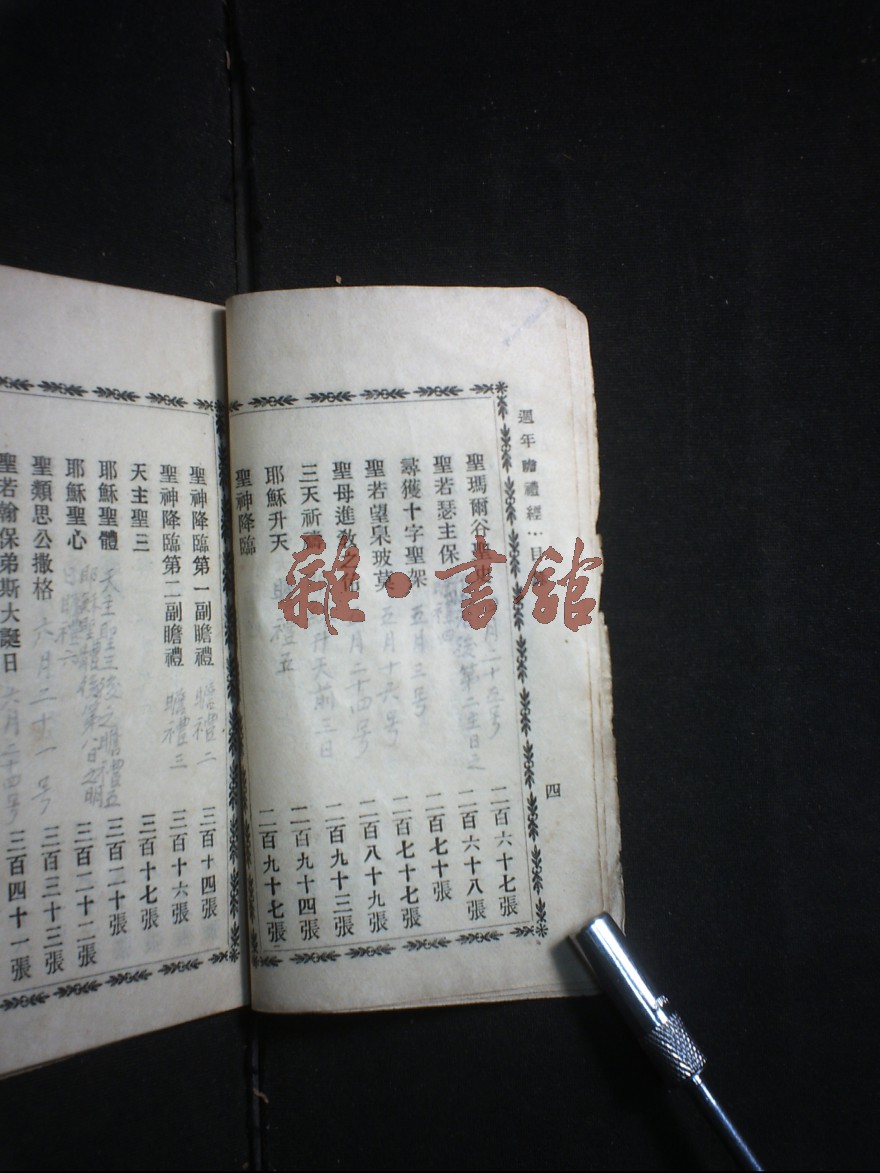 週年瞻禮經 目
四
聖瑪爾谷聖史 月二十五号 二百六十七張
聖若瑟主保 後第二主日之 二百六十八張
瞻禮四 二百七十張
尋獲十字聖架 五月三号 二百七十七張
聖若望臬玻莫 五月十六号 二百八十九張
聖母進教之佑 月二十四号 二百九十三張
三天祈禱 升天前三日 二百九十四張
耶穌升天 瞻禮五
聖神降臨 二百九十七張
聖神降臨第一副瞻禮 瞻禮二 三百十四張
聖神降臨第二副瞻禮 瞻禮三 三百十六張
天主聖三 三百十七張
耶穌聖體 天主聖三後之瞻禮五 三百二十張
耶穌聖心 耶穌聖體後第八日之明日瞻禮六 三百二十二張
聖類思公撒格 六月二十一号 三百三十三張
聖若翰保弟斯大誕日 六月二十四号 三百四十一張
雜·書館